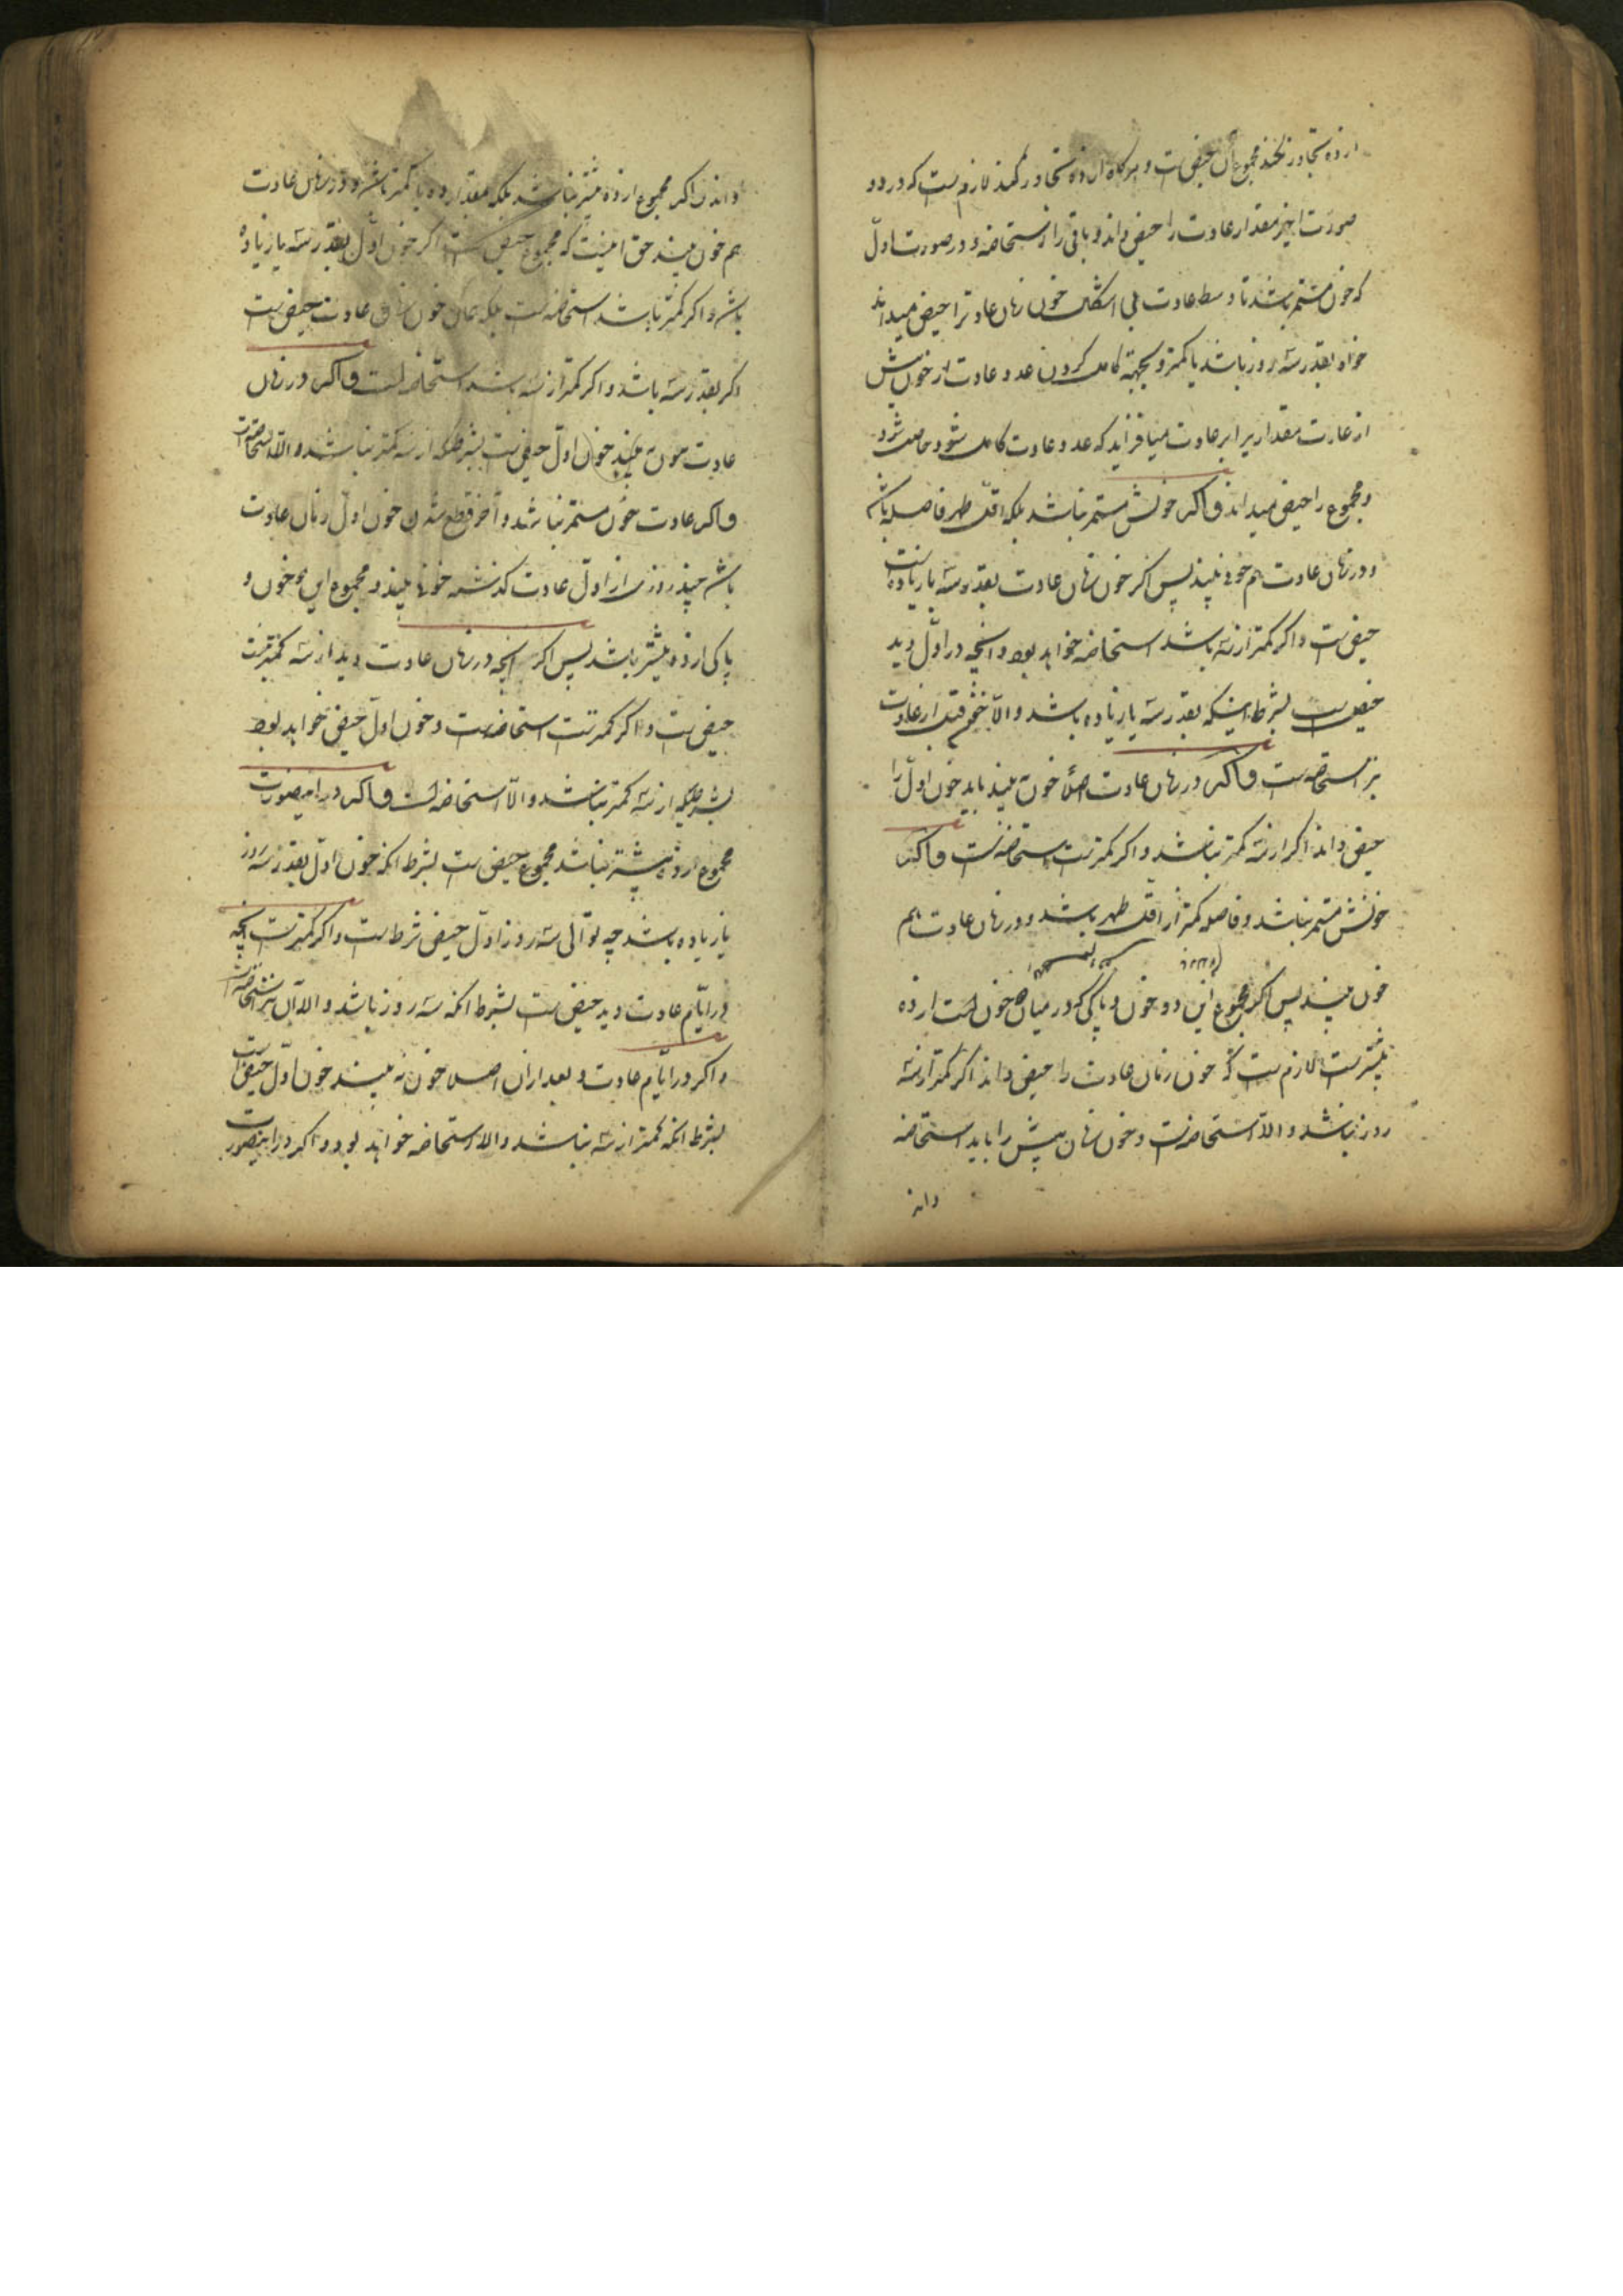 از ده تجاوز نکند مجموع آن حیض است و هرگاه از ده تجاوز کند لازم است که در دو
صورت اخیر مقدار عادت را حیض داند و باقی را استحاضه و در صورت اول
که خون مستمر باشد تا وسط عادت بی اشکال خون زمان عادت را حیض میداند
خواه بقدر سه روز باشد یا کمتر و بجهة کامل کردن عدد عادت از خون پیش
از عادت مقدار برابر عادت میافزاید که عدد عادت کامل شود حاصل شود
و مجموع را حیض میداند و اگر خونش مستمر نباشد بلکه اقل طهر فاصله باشد
و در زمان عادت هم خون به بیند پس اگر خون زمان عادت بقدر سه یا زیاده است
حیض است و اگر کمتر از سه باشد استحاضه خواهد بود و آنچه در اول دید
حیض است بشرط اینکه بقدر سه یا زیاده باشد والا خون قبل از عادت
نیز استحاضه است و اگر در زمان عادت اصلا خون نه بیند باید خون اول را
حیض داند اگر از سه کمتر نباشد و اگر کمتر است استحاضه است و اگر
خونش مستمر نباشد و فاصله کمتر از اقل طهر باشد و در زمان عادت هم
خون بیند پس اگر مجموع این دو خون و پاکی که در میان خون است از ده
بیشتر است لازم است که خون زمان عادت را حیض داند اگر کمتر از سه
روز نباشد والا استحاضه است و خون زمان پیش را باید استحاضه
داند
داند و اگر مجموع از ده بیشتر نباشد بلکه مقدار ده یا کمتر باشد و در زمان عادت
هم خون بیند حق اینست که مجموع حیض است اگر خون اول بقدر سه یا زیاده
باشد و اگر کمتر باشد استحاضه است بلکه همان خون زمان عادت حیض است
اگر بقدر سه باشد و اگر کمتر از سه باشد استحاضه است و اگر در زمان
عادت خون نه بیند خون اول حیض است بشرطیکه از سه کمتر نباشد والا استحاضه است
و اگر عادت خون مستمر نباشد و آخر قطع شدن خون اول زمان عادت
باشد چند روزی از اول عادت گذشته خون به بیند و مجموع این دو خون و
پاکی از ده بیشتر باشد پس اگر آنچه در زمان عادت دید از سه کمتر نیست
حیض است و اگر کمتر است استحاضه است و خون اول حیض خواهد بود
بشرطیکه از سه کمتر نباشد والا استحاضه است و اگر در اینصورت
مجموع از ده بیشتر نباشد مجموع حیض است بشرط آنکه خون اول بقدر سه روز
یا زیاده باشد چه توالی سه روز اول حیض شرط است و اگر کمتر است آنچه
در ایام عادت دید حیض است بشرط آنکه سه روز باشد والا آن نیز استحاضه است
و اگر در ایام عادت و بعد از آن اصلا خون نه بیند خون اول حیض است
بشرط آنکه کمتر از سه نباشد والا استحاضه خواهد بود و اگر در اینصورت